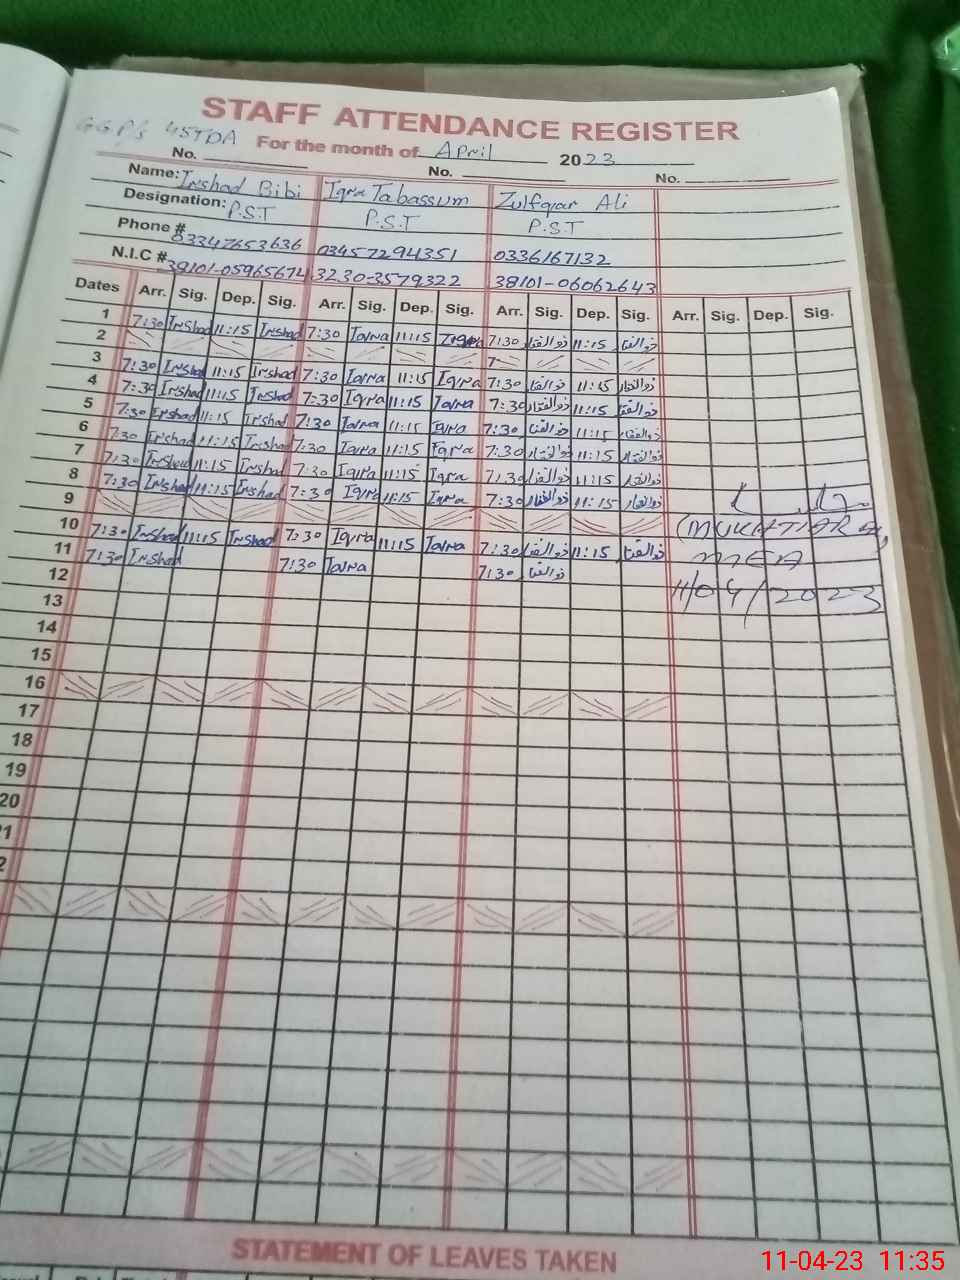 STAFF ATTENDANCE REGISTER
GGP/s 45TDA
For the month of April 2023
No. No. No.
Name: Irshad Bibi Iqra Tabassum Zulfqar Ali
Designation: P.S.T P.S.T P.S.T
Phone # 03347653636 03457294351 0336167132
N.I.C # 38101-05965674 3230-3579322 38101-06062643
Dates Arr. Sig. Dep. Sig. Arr. Sig. Dep. Sig. Arr. Sig. Dep. Sig. Arr. Sig. Dep. Sig.
1 7:30 Irshad 11:15 Irshad 7:30 Iqra 11:15 Iqra 7:30 ذوالفقار 11:15 ذوالفقار
2
3 7:30 Irshad 11:15 Irshad 7:30 Iqra 11:15 Iqra 7:30 ذوالفقار 11:15 ذوالفقار
4 7:30 Irshad 11:15 Irshad 7:30 Iqra 11:15 Iqra 7:30 ذوالفقار 11:15 ذوالفقار
5 7:30 Irshad 11:15 Irshad 7:30 Iqra 11:15 Iqra 7:30 ذوالفقار 11:15 ذوالفقار
6 7:30 Irshad 11:15 Irshad 7:30 Iqra 11:15 Iqra 7:30 ذوالفقار 11:15 ذوالفقار
7 7:30 Irshad 11:15 Irshad 7:30 Iqra 11:15 Iqra 7:30 ذوالفقار 11:15 ذوالفقار
8 7:30 Irshad 11:15 Irshad 7:30 Iqra 11:15 Iqra 7:30 ذوالفقار 11:15 ذوالفقار
9
10 7:30 Irshad 11:15 Irshad 7:30 Iqra 11:15 Iqra 7:30 ذوالفقار 11:15 ذوالفقار
11 7:30 Irshad 7:30 Iqra 7:30 ذوالفقار
(MUKHTIAR
MEA
11/04/2023
12
13
14
15
16
17
18
19
20
STATEMENT OF LEAVES TAKEN
11-04-23 11:35